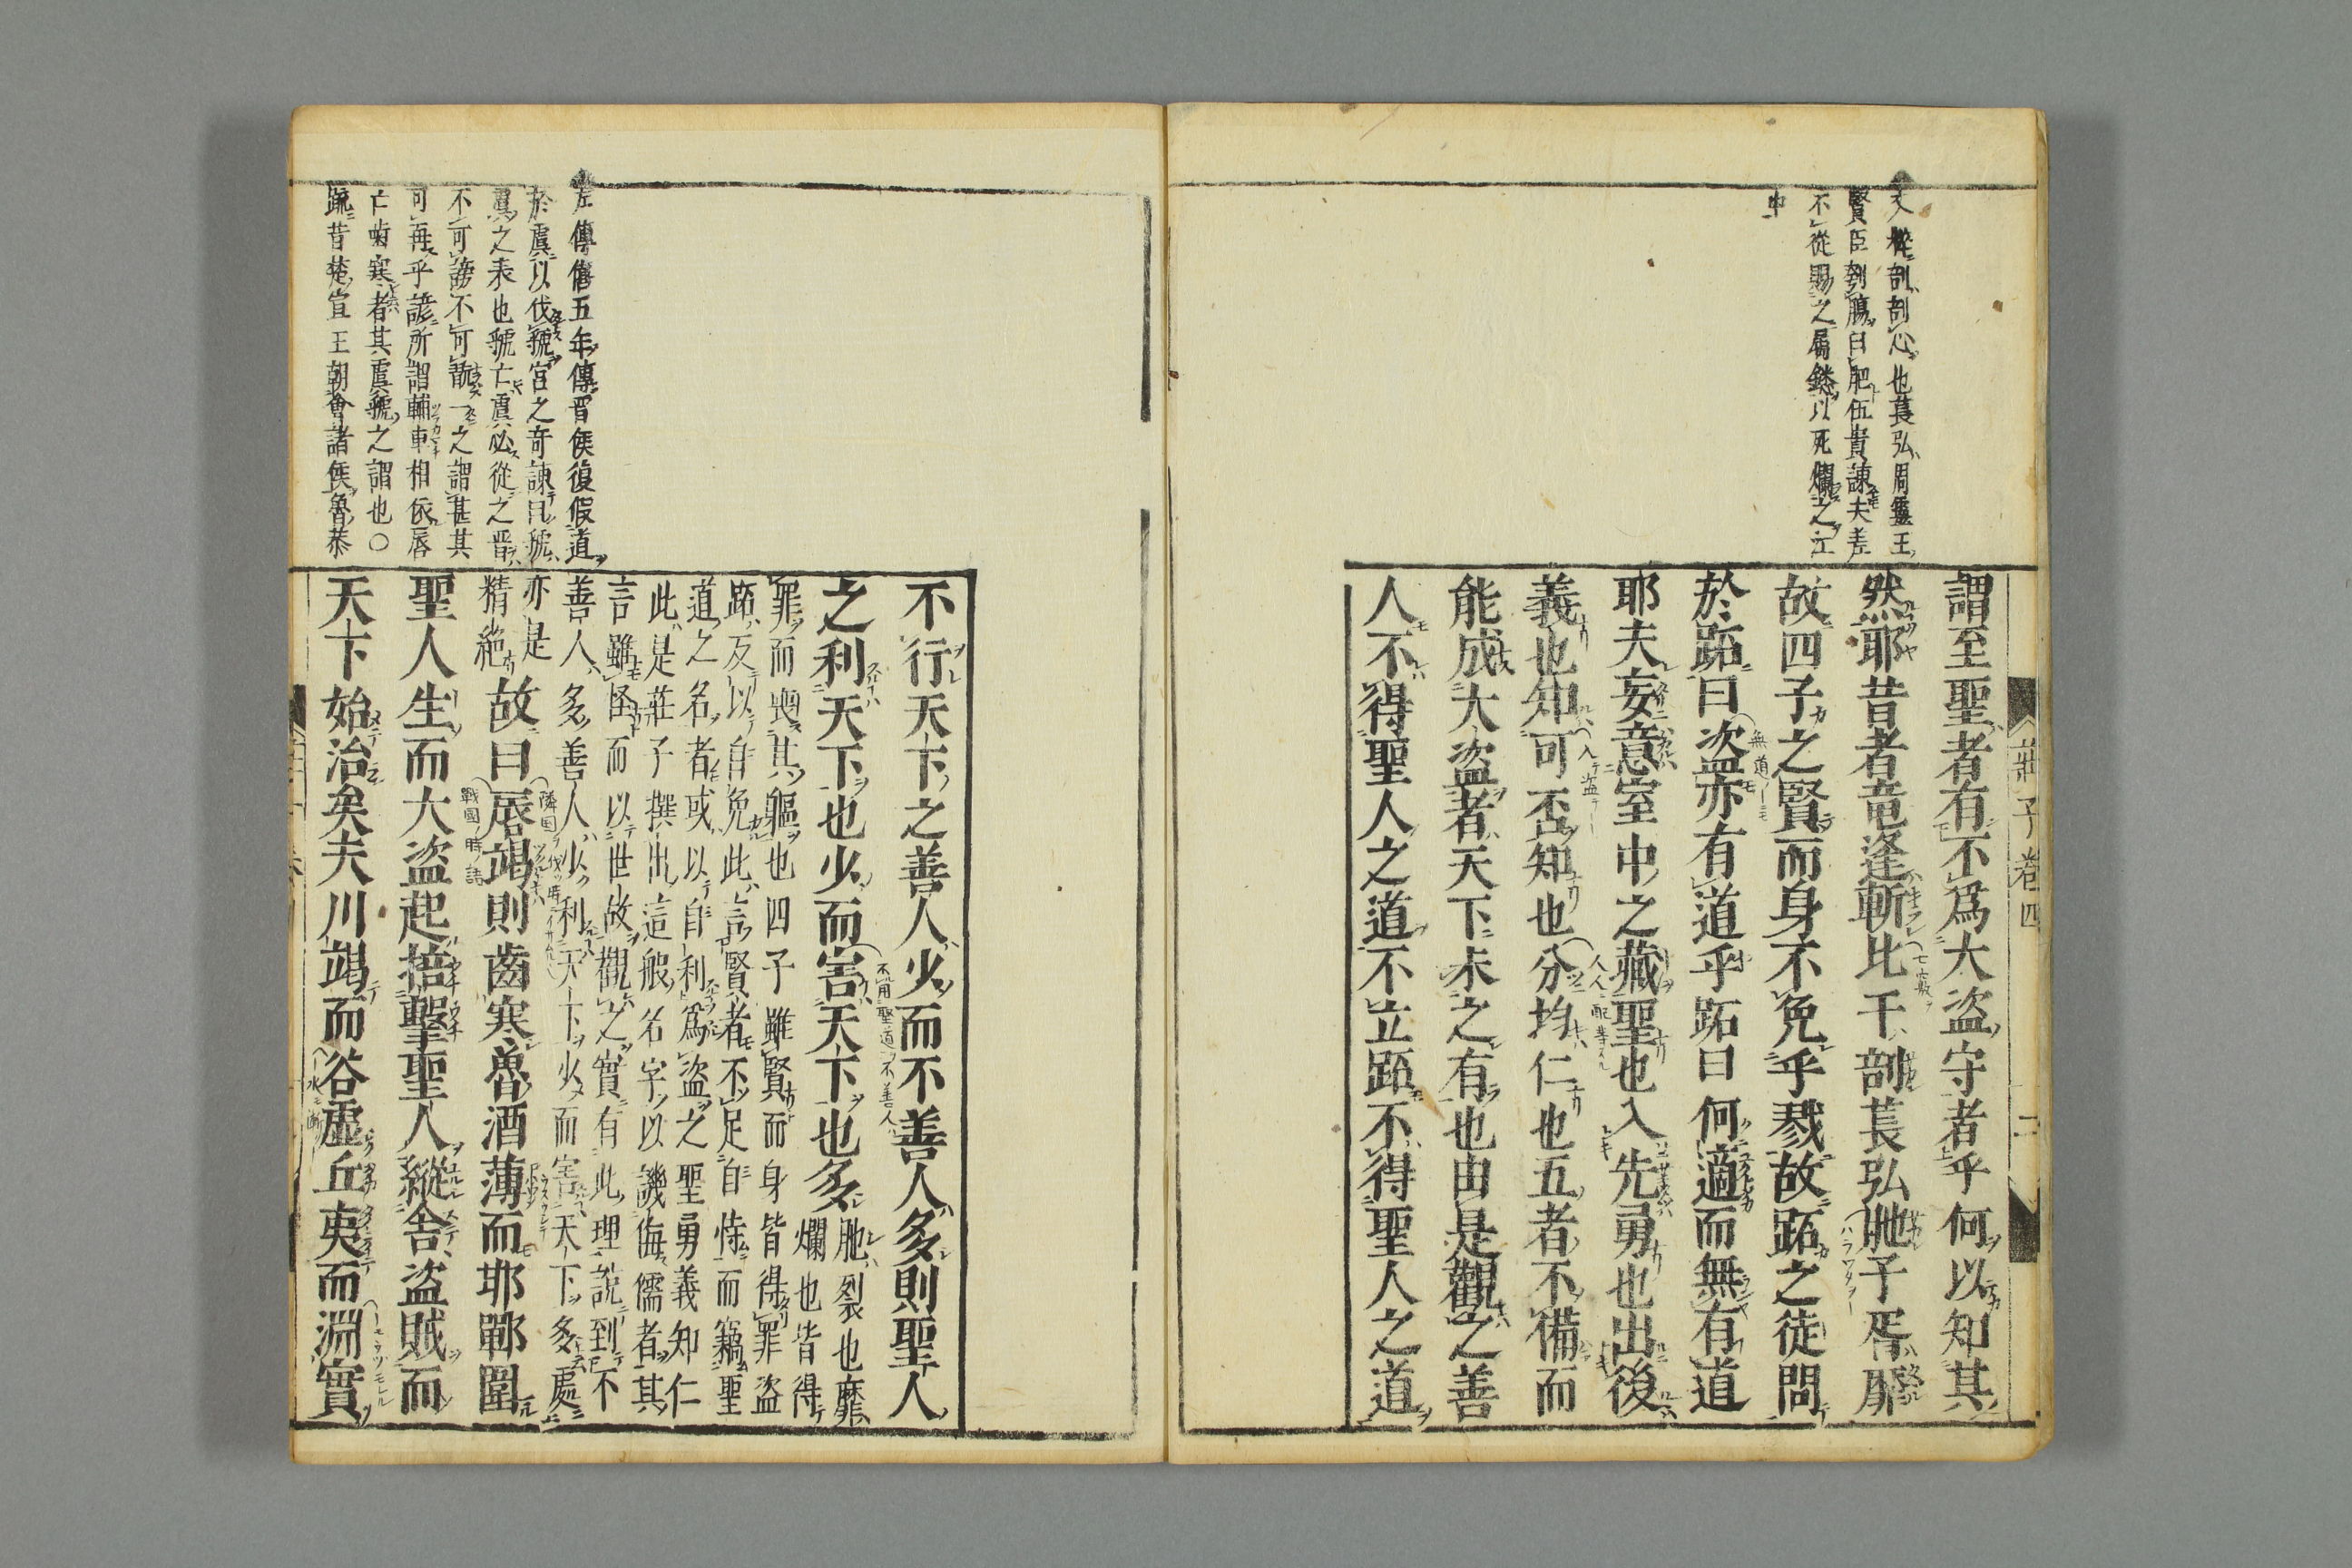 文樅剖剖心也萇弘周靈王
賢臣刳腸曰肥伍員諫夫差
不從賜之屬鏤以死爛之江
中
謂至聖者有不爲大盜守者乎何以知其
然耶昔者竜逢斬比干剖萇弘胣子胥靡
故四子之賢而身不免乎戮故跖之徒問
於跖曰盗亦有道乎跖曰何適而無有道
耶夫妄意室中之藏聖也入先勇也出後
義也知可否知也分均仁也五者不備而
能成大盗者天下未之有也由是觀之善
人不得聖人之道不立跖不得聖人之道
莊子卷四
二
左傳僖五年傳晋侯復假道
於虞以伐虢宮之奇諫曰虢
虞之表也虢亡虞必從之晋
不可謗不可翫一之謂甚其
可再乎諺所謂輔車相依唇
亡齒寒者其虞虢之謂也〇
疏昔楚宣王朝會諸侯魯恭
不行天下之善人少而不善人多則聖人
之利天下也少而害天下也多胣裂也靡
爛也皆得
罪而喪其軀也四子雖賢而身皆得罪盗
跖反以自免此言賢者不足自恃而竊聖
道之名者或以自利爲盗之聖勇義知仁
此是莊子撰出這般名字以譏侮儒者其
言雖怪而以世故觀之實有此理說到不
善人多善人少利天下少而害天下多處
亦是
精絶故曰唇竭則齒寒魯酒薄而耶鄲圍
聖人生而大盗起掊擊聖人縱舍盗賊而
天下始治矣夫川竭而谷虛丘夷而淵實